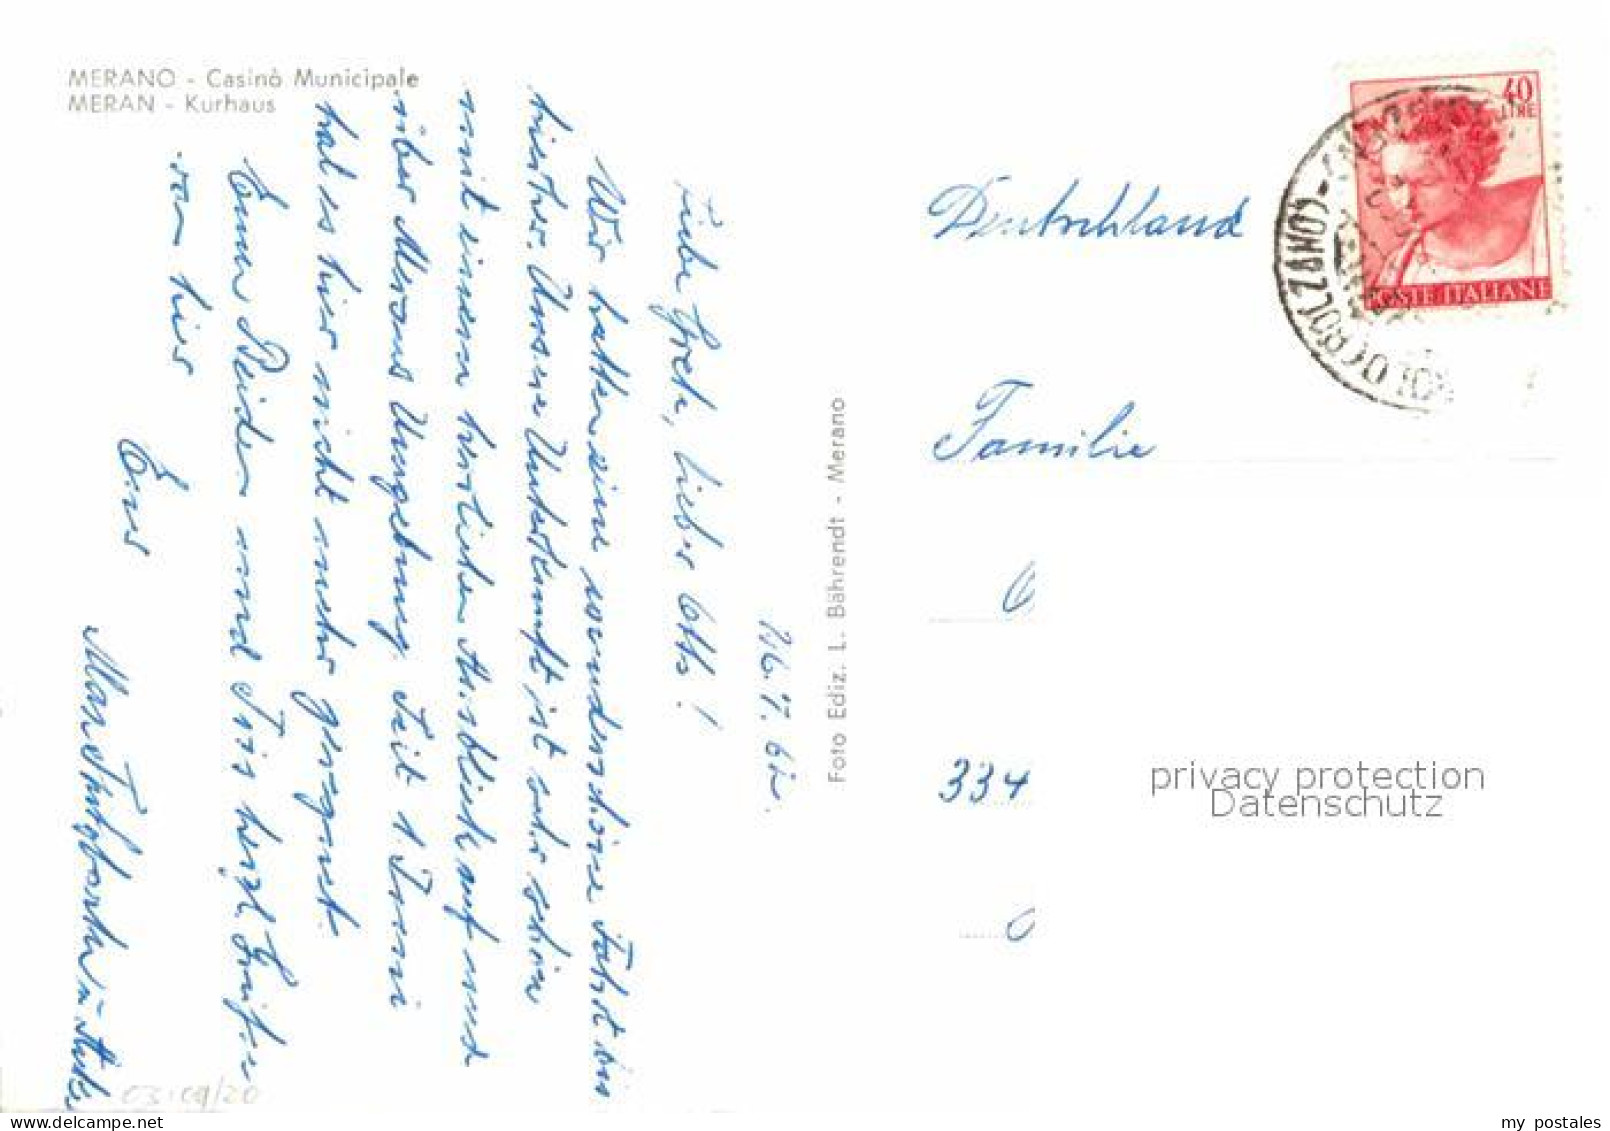 MERANO - Casinò Municipale
MERAN - Kurhaus
26.7.62.
Liebe Grete, lieber Otto!
Wir hatten eine wunderschöne Fahrt bis
hierher. Unsere Unterkunft ist sehr schön
mit einem herrlichen Ausblick auf und
über Merans Umgebung. Seit 1. Juni
hat es hier nicht mehr geregnet.
Euch Beiden und herzl. Grüße
von hier
Eure
Foto Ediz. L. Bährendt - Merano
40
LIRE
POSTE ITALIANE
Deutschland
Familie
334
privacy protection
Datenschutz
03.09/20
my postales